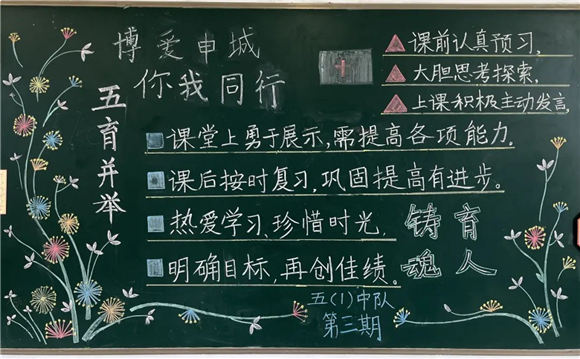 博爱申城
你我同行
五育并举
课前认真预习,
大胆思考探索,
上课积极主动发言,
课堂上勇于展示,需提高各项能力.
课后按时复习,巩固提高有进步。
热爱学习,珍惜时光,
明确目标,再创佳绩。
铸育
魂人
五(1)中队
第三期